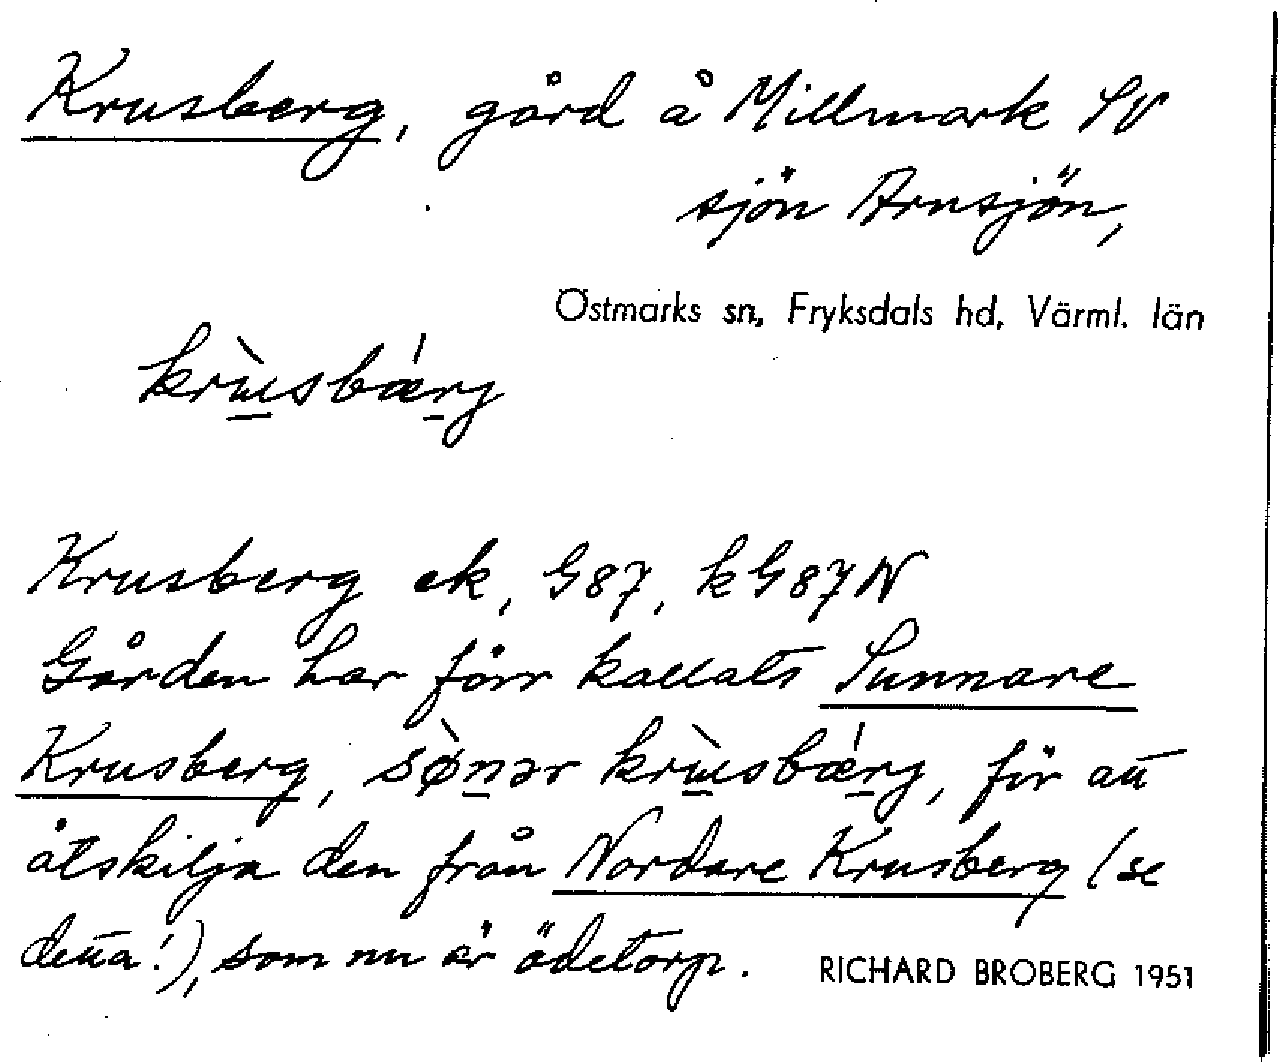 Krusberg, gård å Millmark SV
sjön Arnsjön,
Östmarks sn, Fryksdals hd, Värml. län
krùsbǽrj
Krusberg ek, G87, kG87N
Gården har förr kallats Sunnare
Krusberg, sø̀nər krùsbǽrj, för att
åtskilja den från Nordare Krusberg (se
detta!), som nu är ödetorp.
RICHARD BROBERG 1951